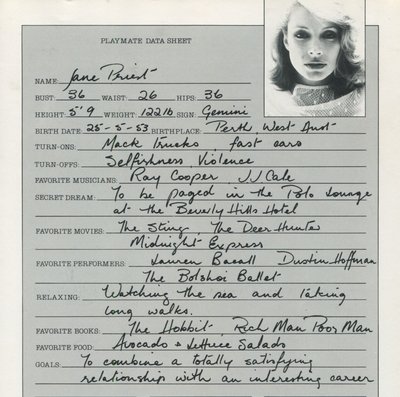 PLAYMATE DATA SHEET
NAME: Jane Priest
BUST: 36 WAIST: 26 HIPS: 36
HEIGHT: 5'9 WEIGHT: 122lb SIGN: Gemini
BIRTH DATE: 25-5-53 BIRTHPLACE: Perth, West Aust
TURN-ONS: Mack trucks, fast cars
TURN-OFFS: Selfishness, Violence
FAVORITE MUSICIANS: Ray Cooper, JJ Cale
SECRET DREAM: To be paged in the Polo Lounge
at the Beverly Hills Hotel
FAVORITE MOVIES: The Sting, The Deer Hunter
Midnight Express
FAVORITE PERFORMERS: Lauren Bacall Dustin Hoffman
The Bolshoi Ballet
RELAXING: Watching the sea and taking
long walks.
FAVORITE BOOKS: The Hobbit, Rich Man Poor Man
FAVORITE FOOD: Avocados & Lettuce Salads
GOALS: To combine a totally satisfying
relationship with an interesting career